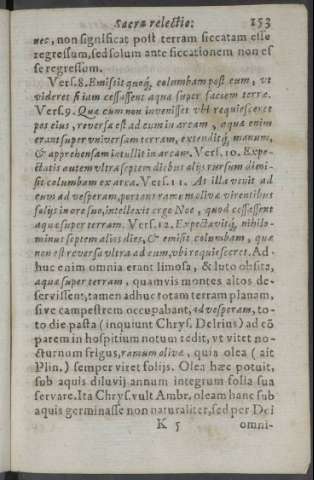 Sacra relectio: 153
nec, non significat post terram siccatam esse
regressum, sed solum ante siccationem non es
se regressum.
Vers. 8. Emisit quoq; columbam post eum, vt
videret si iam cessassent aquæ super faciem terræ.
Vers. 9. Quæ cum non invenisset vbi requiesceret
pes eius, reversa est ad eum in arcam, aquæ enim
erant super universam terram, extenditq; manum,
& apprehensam intulit in arcam. Vers. 10. Expe-
ctatis autem vltra septem diebus alijs rursum dimi-
sit columbam ex arca. Vers. 11. At illa venit ad
eum ad vesperam, portans ramum olivæ virentibus
folijs in ore suo, intellexit ergo Noe, quod cessassent
aquæ super terram. Vers. 12. Expectavitq; nihilo-
minus septem alios dies, & emisit columbam, quæ
non est reversa vltra ad eum, vbi requiesceret. Ad-
huc enim omnia erant limosa, & luto obsita,
aquæ super terram, quamvis montes altos de-
servissent, tamen adhuc totam terram planam,
sive campestrem occupabant, ad vesperam, to-
to die pasta (inquiunt Chrys. Delrius) ad cō
parem in hospitium notum redit, vt vitet no-
cturnum frigus, ramum olivæ, quia olea (ait
Plin.) semper viret folijs. Olea hæc potuit,
sub aquis diluvij annum integrum folia sua
servare. Ita Chrys. vult Ambr. oleam hanc sub
aquis germinasse non naturaliter, sed per Dei
K 5 omni-